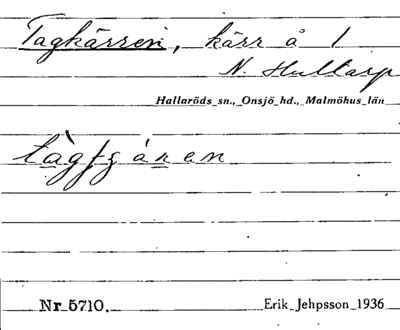 Tagkärren, kärr å 1
N. Hultarp
Hallaröds sn., Onsjö hd., Malmöhus län
Nr 5710.
Erik Jehpsson 1936